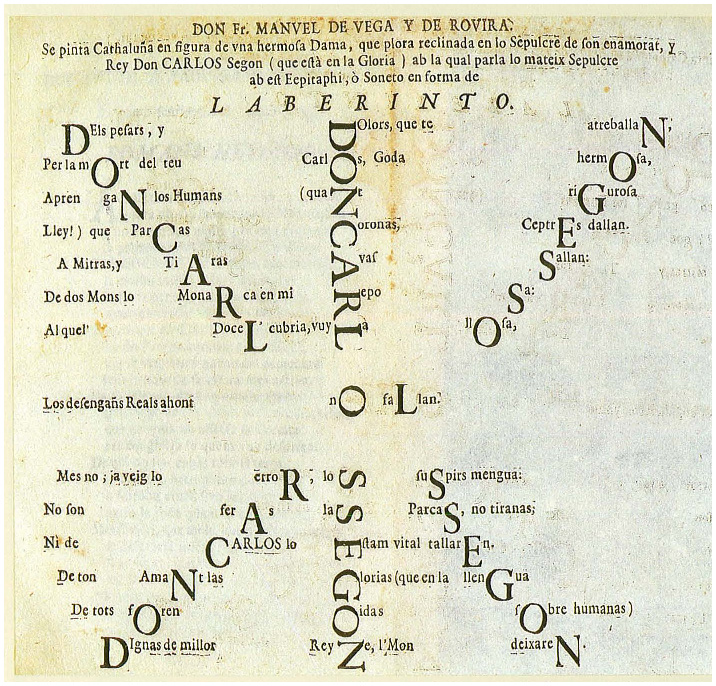 DON Fr. MANVEL DE VEGA Y DE ROVIRA.
Se pinta Cathaluña en figura de vna hermoſa Dama, que plora reclinada en lo Sepulcre de ſon enamorat, y
Rey Don CARLOS Segon (que eſtà en la Gloria) ab la qual parla lo mateix Sepulcre
ab eſt Eepitaphi, ò Soneto en forma de
LABERINTO.
DEls peſars, y DOlors, que te atreballaN;
Per la mOrt del teu CarlOs, Goda hermOſa,
AprenganN los Humans (quaNt riGuroſa
Lley!) que ParCas Coronas, CeptrEs dallan.
A Mitras, y TiAras Avaſ Sallan:
De dos Mons lo MonaRca en mi Repo Sa:
Al quel' DoceL' cubria, vuy Là llOſa,
Los deſengañs Reals ahont nO ſaLlan.
Mes no; ja veig lo erroR; lo S ſuSpirs mengua:
No ſon ferAs laS ParcaS, no tiranas;
Ni de CARLOS lo Eſtam vital tallarEn.
De ton AmaNt las Glorias (que en la llenGua
De tots fOren Oidas ſObre humanas)
DIgnas de millor Rey Ne, l'Mon deixareN.